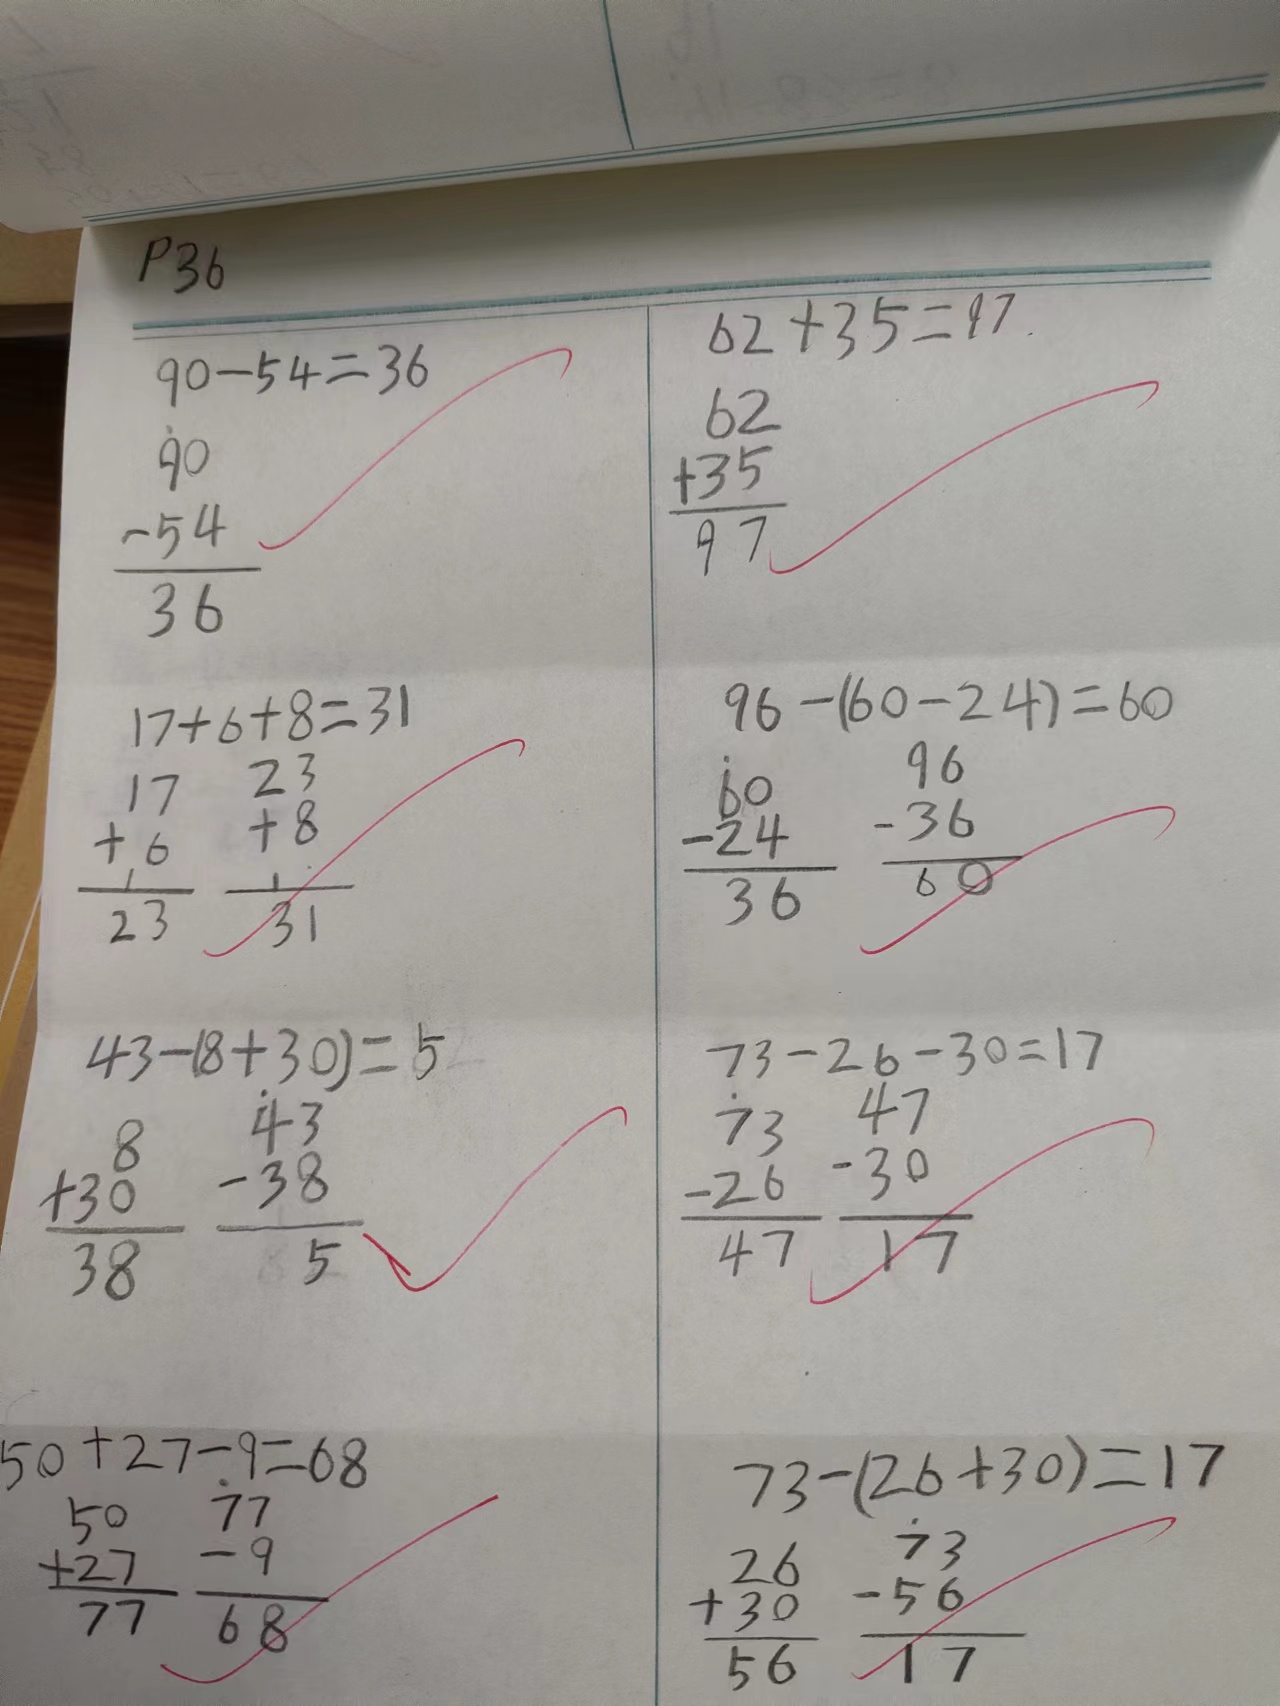 P36
90-54=36
90
-54
36
62+35=97
62
+35
97
17+6+8=31
17 23
+6 +8
1 1
23 31
96-(60-24)=60
60 96
-24 -36
36 60
43-(8+30)=5
8 43
+30 -38
38 5
73-26-30=17
73 47
-26 -30
47 17
50+27-9=68
50 77
+27 -9
77 68
73-(26+30)=17
26 73
+30 -56
56 17